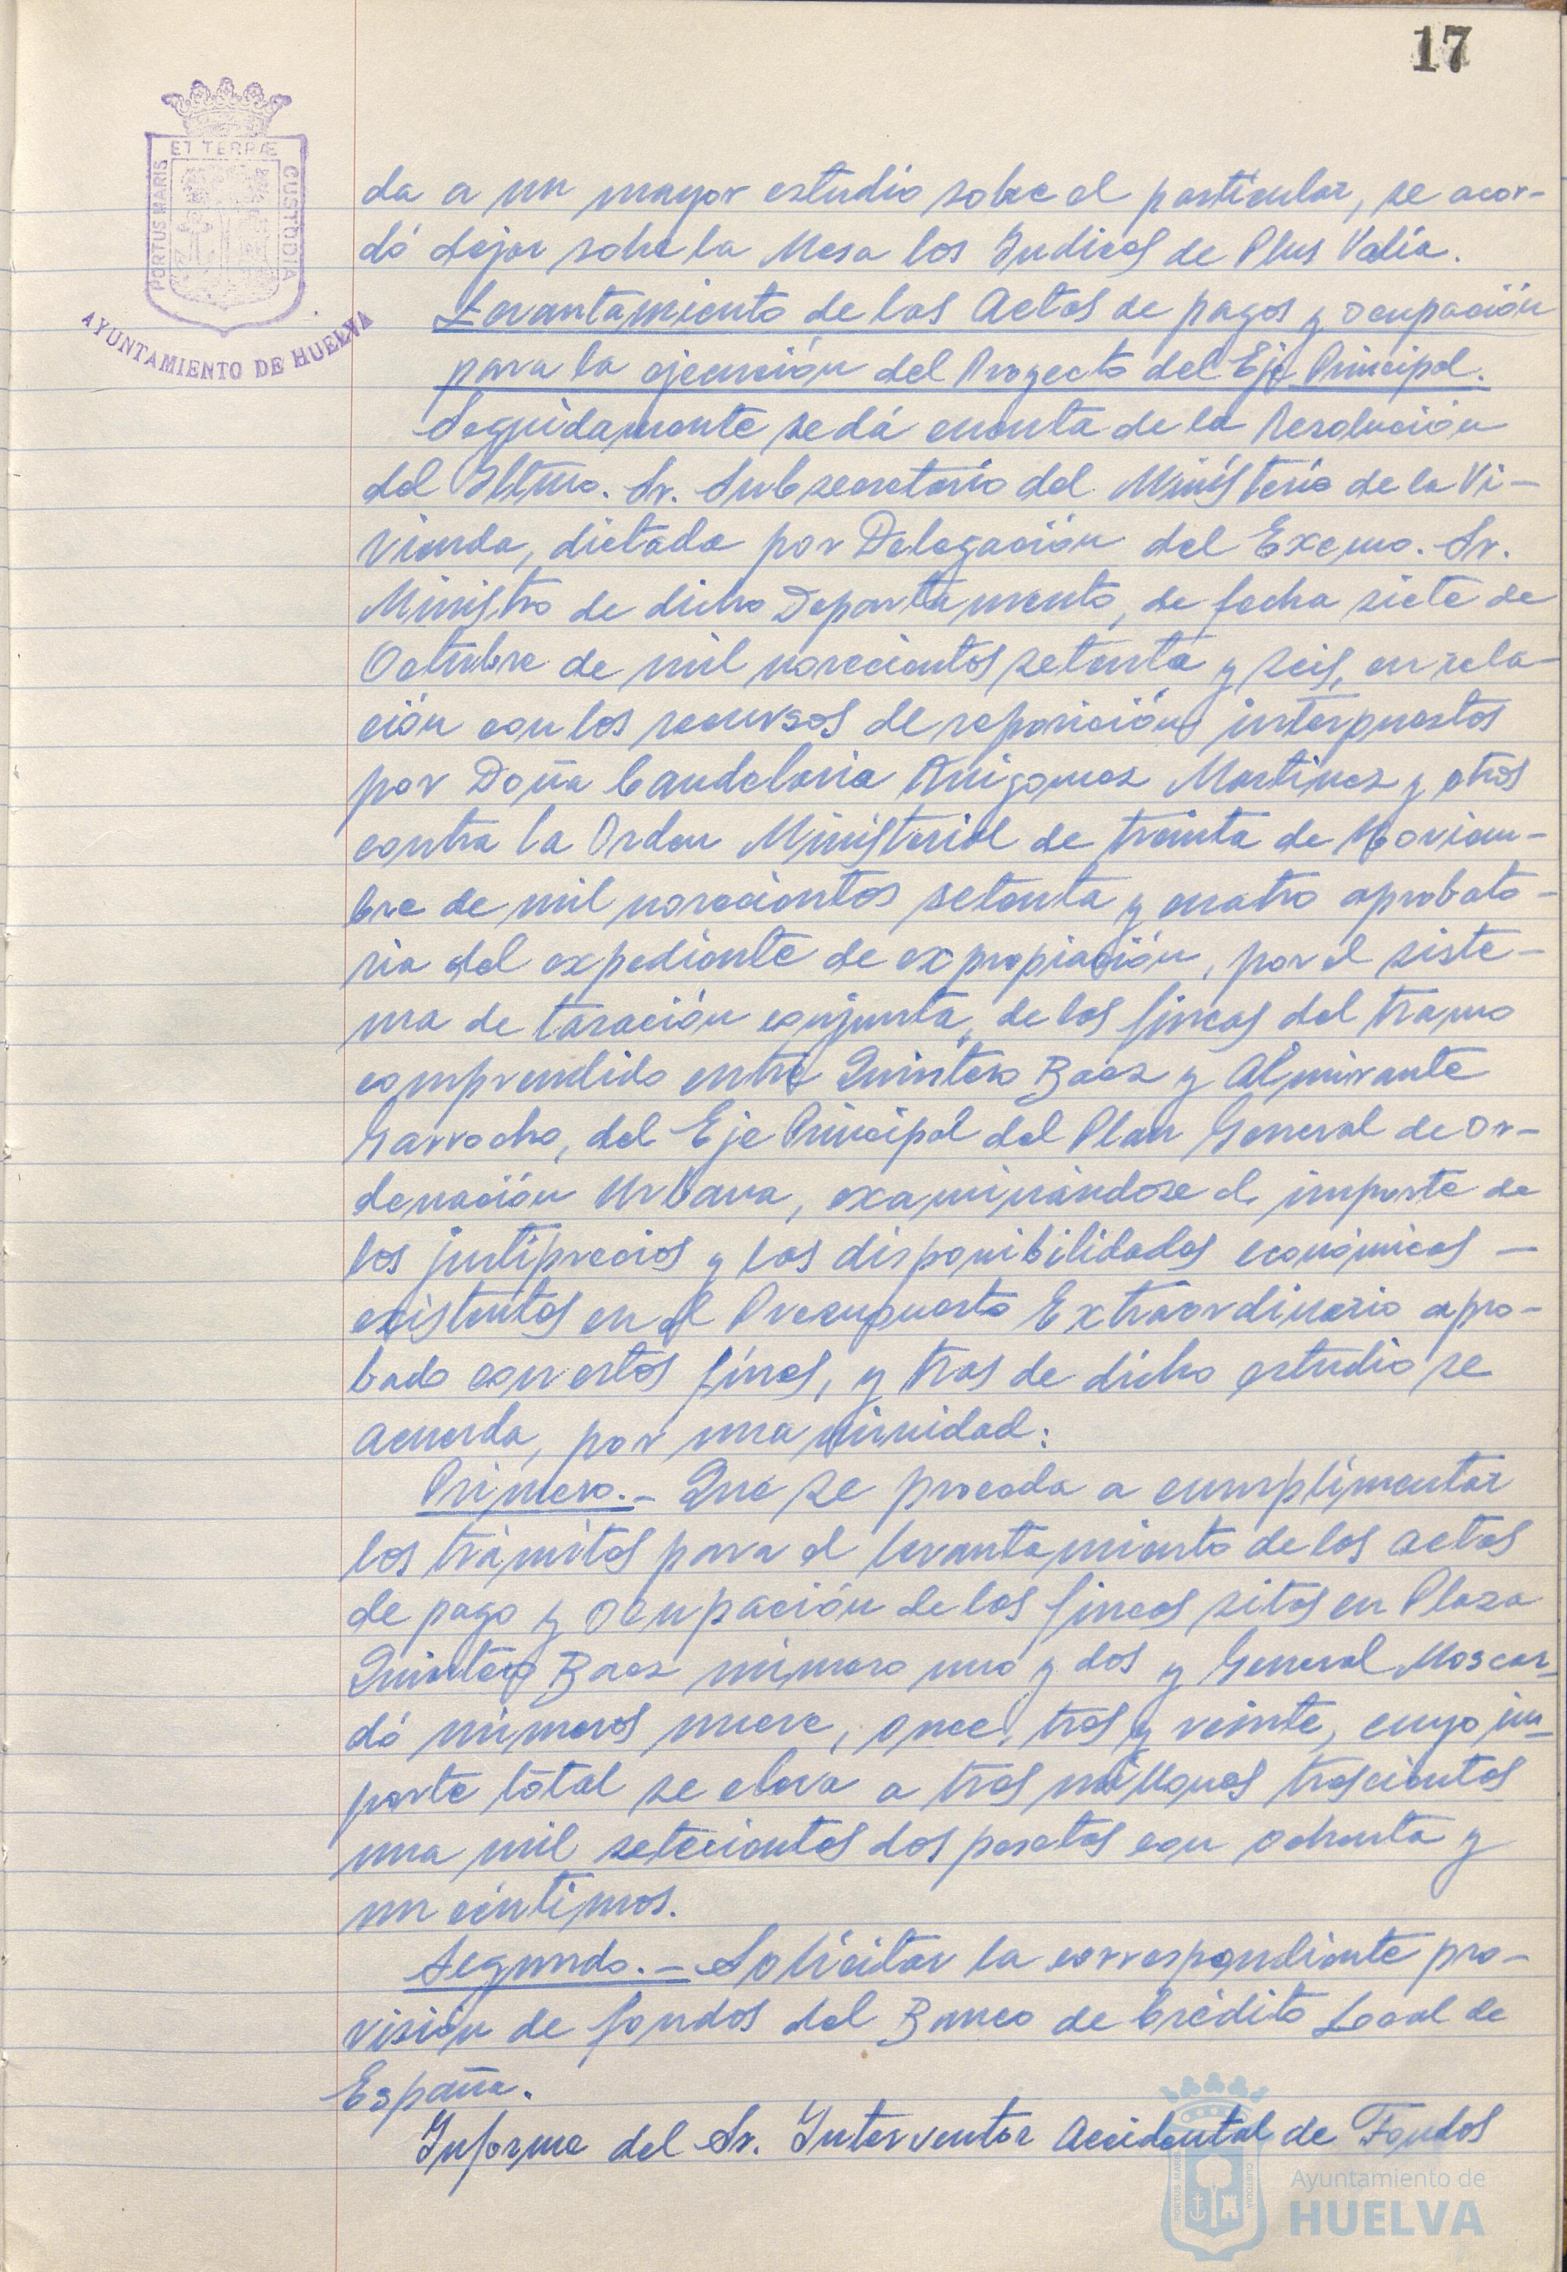 17
ET TERRÆ
PORTUS MARIS
CUSTODIA
AYUNTAMIENTO DE HUELVA
da a un mayor estudio sobre el particular, se acor-
dó dejar sobre la Mesa los Indices de Plus Valía.
Levantamiento de las Actas de pagos y ocupación
para la ejecución del Proyecto del Eje Principal.
Seguidamente se dá cuenta de la Resolución
del Iltmo. Sr. Subsecretario del Ministerio de la Vi-
vienda, dictada por Delegación del Excmo. Sr.
Ministro de dicho Departamento, de fecha siete de
Octubre de mil novecientos setenta y seis, en rela-
ción con los recursos de reposición interpuestos
por Doña Candelaria Amigomez Martinez y otros
contra la Orden Ministerial de treinta de Noviem-
bre de mil novecientos setenta y cuatro aprobato-
ria del expediente de expropiación, por el siste-
ma de tasación conjunta, de las fincas del tramo
comprendido entre Quintero Baez y Almirante
Garrocho, del Eje Principal del Plan General de Or-
denación Urbana, examinándose el importe de
los justiprecios y las disponibilidades económicas -
existentes en el Presupuesto Extraordinario apro-
bado con estos fines, y tras de dicho estudio se
acuerda, por unanimidad:
Primero.- Que se proceda a cumplimentar
los trámites para el levantamiento de las actas
de pago y ocupación de las fincas sitas en Plaza
Quintero Baez número uno y dos y General Moscar-
dó números nueve, once, tres y veinte, cuyo im-
porte total se eleva a tres millones trescientos
una mil setecientas dos pesetas con ochenta y
un céntimos.
Segundo.- Solicitar la correspondiente pro-
visión de fondos del Banco de Crédito Local de
España.
Informe del Sr. Interventor Accidental de Fondos
Ayuntamiento de
HUELVA